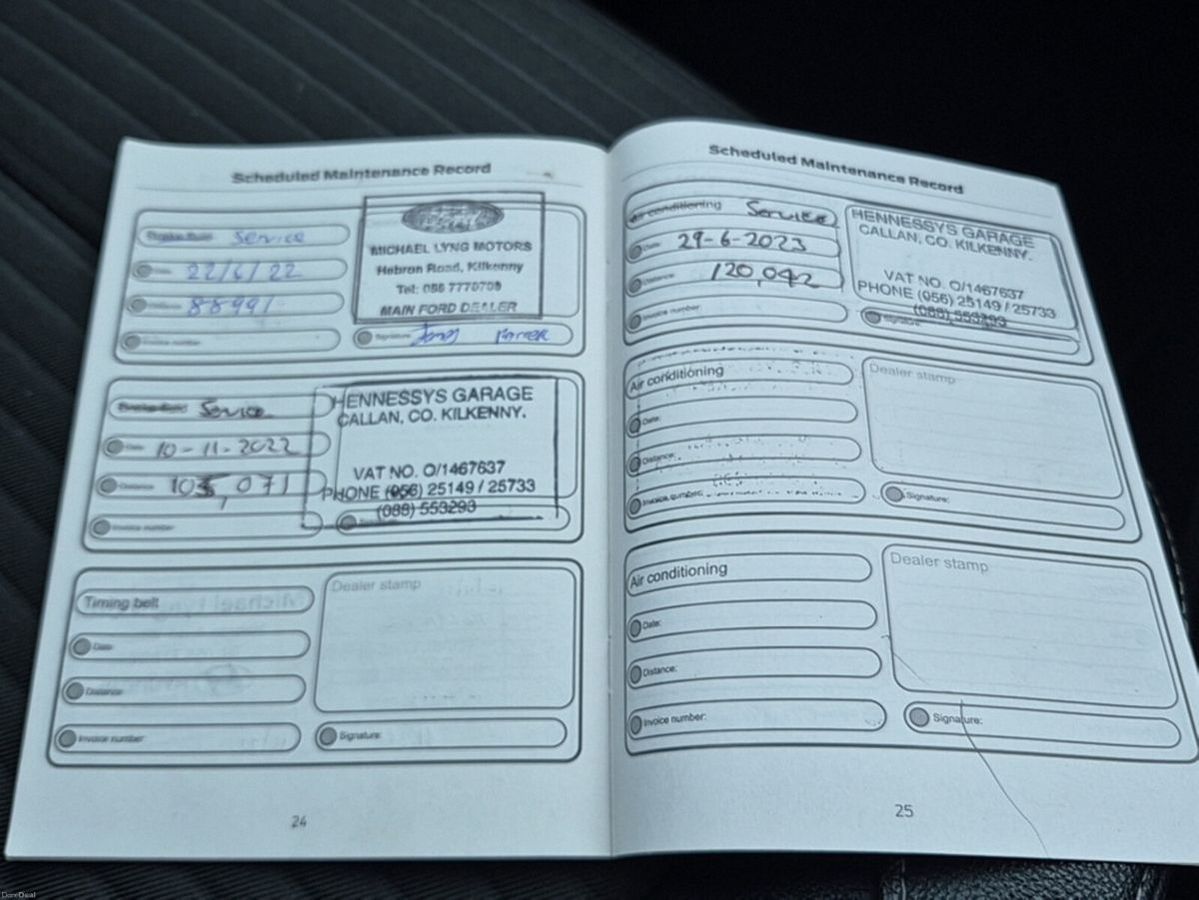 Scheduled Maintenance Record
Service
22/6/22
88991
Invoice number:
Ford
MICHAEL LYNG MOTORS
Hebron Road, Kilkenny
Tel: 056 7770709
MAIN FORD DEALER
Signature:
Service
Date:
10-11-2022
Distance:
Invoice number:
HENNESSYS GARAGE
CALLAN, CO. KILKENNY.
VAT NO. O/1467637
PHONE (056) 25149 / 25733
(088) 553293
Timing belt
Date:
Distance:
Invoice number:
Dealer stamp
Signature:
24
Scheduled Maintenance Record
Air conditioning Service
Date: 29-6-2023
Distance: 120,042
Invoice number:
HENNESSYS GARAGE
CALLAN, CO. KILKENNY.
VAT NO. O/1467637
PHONE (056) 25149 / 25733
(088) 553293
Signature:
Air conditioning
Date:
Distance:
Invoice number:
Dealer stamp
Signature:
Air conditioning
Date:
Distance:
Invoice number:
Dealer stamp
Signature:
25
DoneDeal